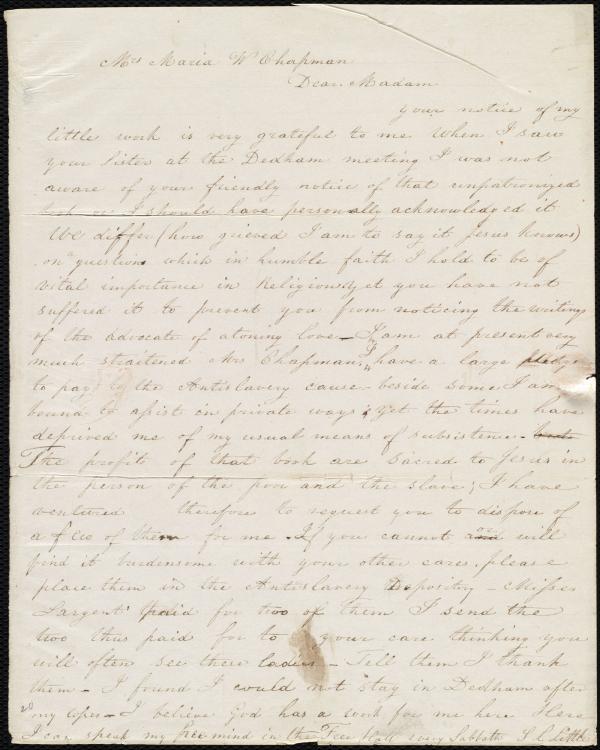 Mrs Maria W Chapman
Dear Madam
your notice of my
little work is very grateful to me When I saw
your Sister at the Dedham meeting I was not
aware of your friendly notice of that unpatronized
or I should have personally acknowledged it
We differ (how grieved I am to say it Jesus knows)
on questions which in humble faith I hold to be of
vital importance in Religion yet you have not
suffered it to prevent you from noticing the writings
of the advocate of atoning love — I am at present very
much straitened Mrs Chapman, I have a large pledge
to pay to the Antislavery cause beside some I am
bound to assist in private ways; yet the times have
deprived me of my usual means of subsistence -
The profits of that book are sacred to Jesus in
the person of the poor and the slave; I have
ventured therefore to request you to dispose of
a few of them for me - If you cannot or will
find it burdensome with your other cares, please
place them in the Antislavery Depository - Misses
Sargent paid for two of them I send the
two thus paid for to your care thinking you
will often see these ladies - Tell them I thank
them - I found I could not stay in Dedham after
my - I believe God has a work for me here Here
I can speak my free mind in the Free Hall every Sabbath S L Little